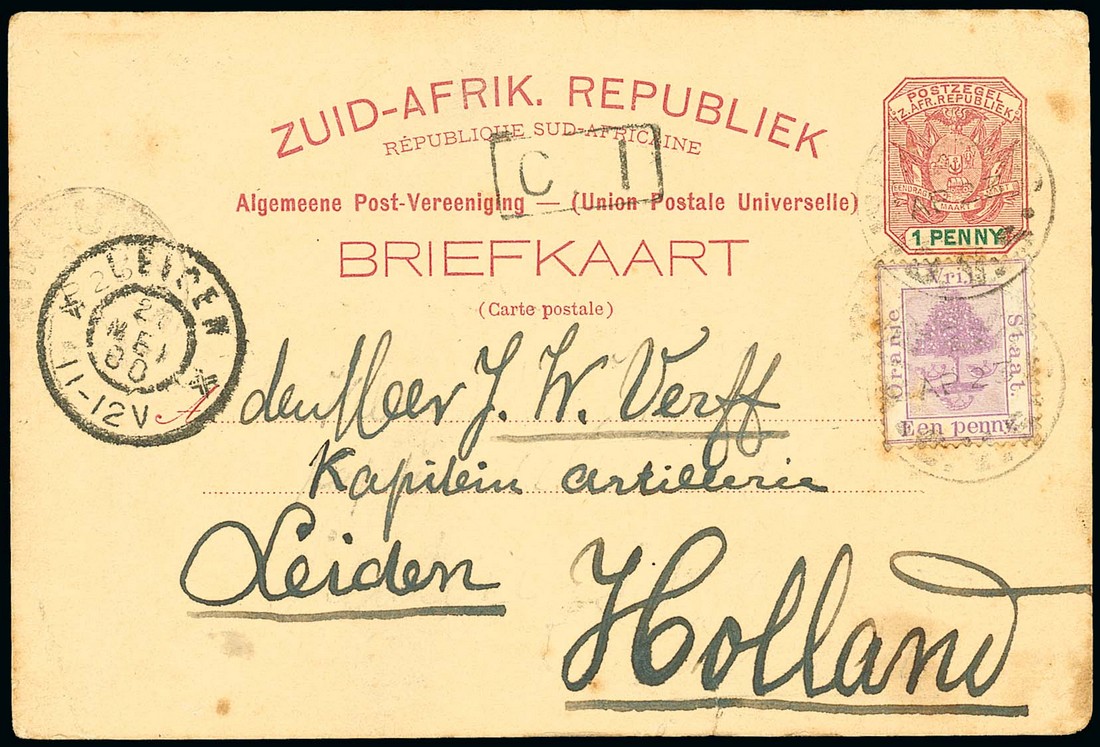 ZUID-AFRIK. REPUBLIEK
RÉPUBLIQUE SUD-AFRICAINE
C I
Algemeene Post-Vereeniging — (Union Postale Universelle)
BRIEFKAART
(Carte postale)
POSTZEGEL
Z.AFR.REPUBLIEK
EENDRAGT MAAKT MAGT
1 PENNY
Oranje Vrij Staat.
Een penny.
AP
LEIDEN
MEI
00
11-12V
A
den Heer J. W. Verff
Kapitein artillerie
Leiden
Holland